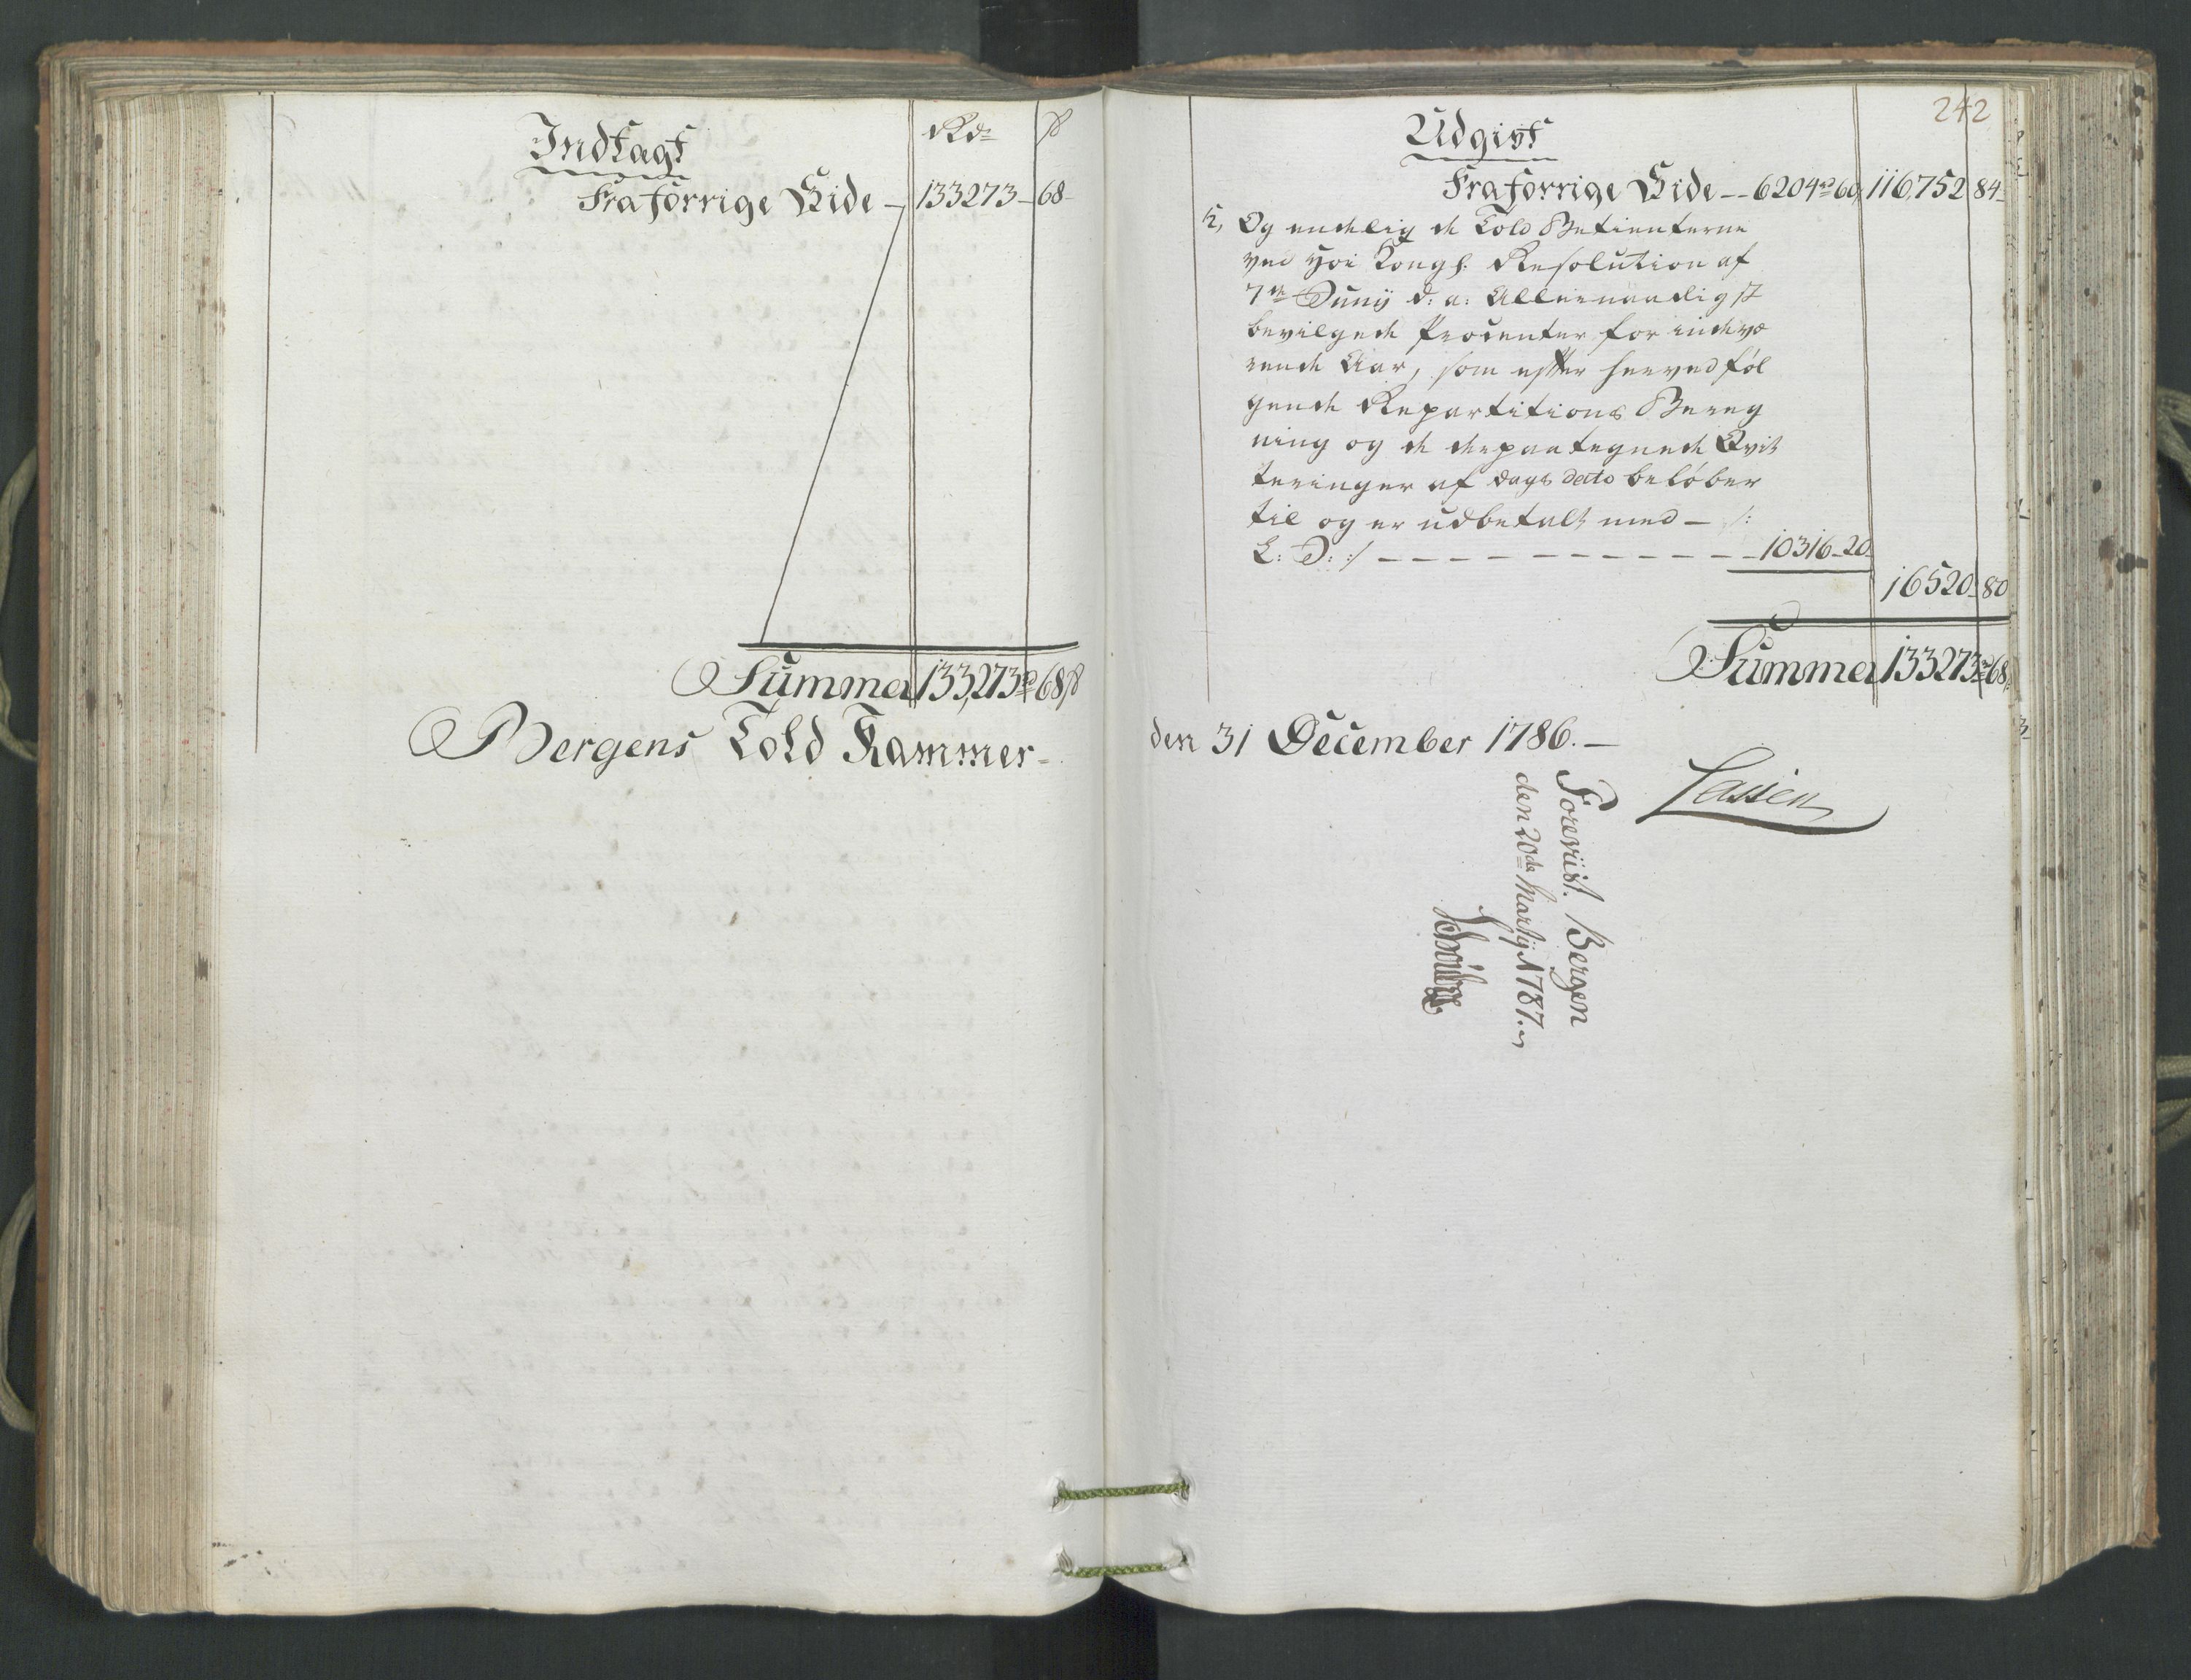 Indtagt
Rd: ß
Fra forrige Side – 133273 – 68 –
Summa 133,273 rd 68 ß
Bergens Told Kammer –
242
Udgivt
Fra forrige Side – – 6204 rd 60, 116,752 84 –
5, Og endelig de Told Betienterne
ved høi Kongl: Resolution af
7de Junij d: a: Allernaadigst
bevilgede Procenter for indevæ
rende Aar, som efter hervedføl
gende Repartitions Bereg
ning og de derpaategnede Qvit
teringer af dags dato beløber
til og er udbetalt med – /:
L: D: :/ – – – – – – – – – – – 10316 – 20 –
16520 – 80
Summa 133273 rd 68 ß
den 31 December 1786. –
Lassen
Foreviist. Bergen
den 20de Martij 1787.